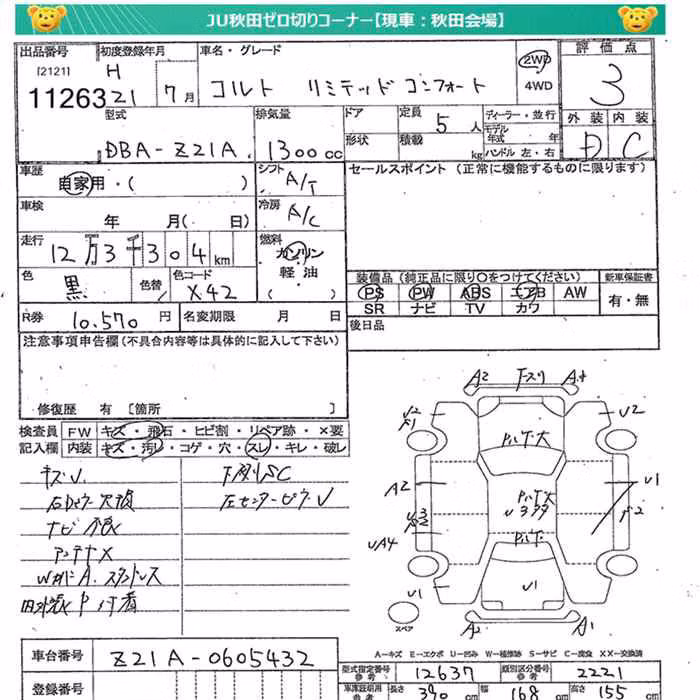 JU秋田ゼロ切りコーナー【現車：秋田会場】
出品番号 初度登録年月 車名・グレード 評価点
[2121] H 2WD
11263 21 7月 コルト リミテッド コンフォート 4WD 3
型式 排気量 ドア 定員 5人 ディーラー・並行 外装 内装
モデル年式 年
DBA-Z21A 1300cc 形状 積載 kg ハンドル 左・右 D C
車歴 シフト セールスポイント (正常に機能するものに限ります)
自家用・( ) A/T
車検 年 月( 日) 冷房 A/C
走行 燃料
12万3千304km ガソリン
色 色替 色コード 軽油 装備品 (純正品に限り○をつけてください) 新車保証書
黒 X42 ( ) PS PW ABS エアB AW 有・無
SR ナビ TV カワ
R券 10,570円 名変期限 月 日 後日品
注意事項申告欄 (不具合内容等は具体的に記入して下さい)
修復歴 有 [箇所 ]
検査員 FW キズ・飛石・ヒビ割・リペア跡・×要
記入欄 内装 キズ・汚レ・コゲ・穴・スレ・キレ・破レ
キズU 下廻りSC
左センターピラーU
アンテナX
A2 下スリ A4
U2 U2
P1
P.U.大
A2 U1
P.U.大
U3 U399 P2
P2
UA4 P.U.
U1 U1
スペア A2 A1
A－キズ E－エクボ U－凹み W－補修跡 S－サビ C－腐食 XX－交換済
車台番号 Z21A-0605432 型式指定番号 参考 12637 類別区分番号 参考 2221
登録番号 車庫証明用 参考 長さ 390cm 幅 168cm 高さ 155cm